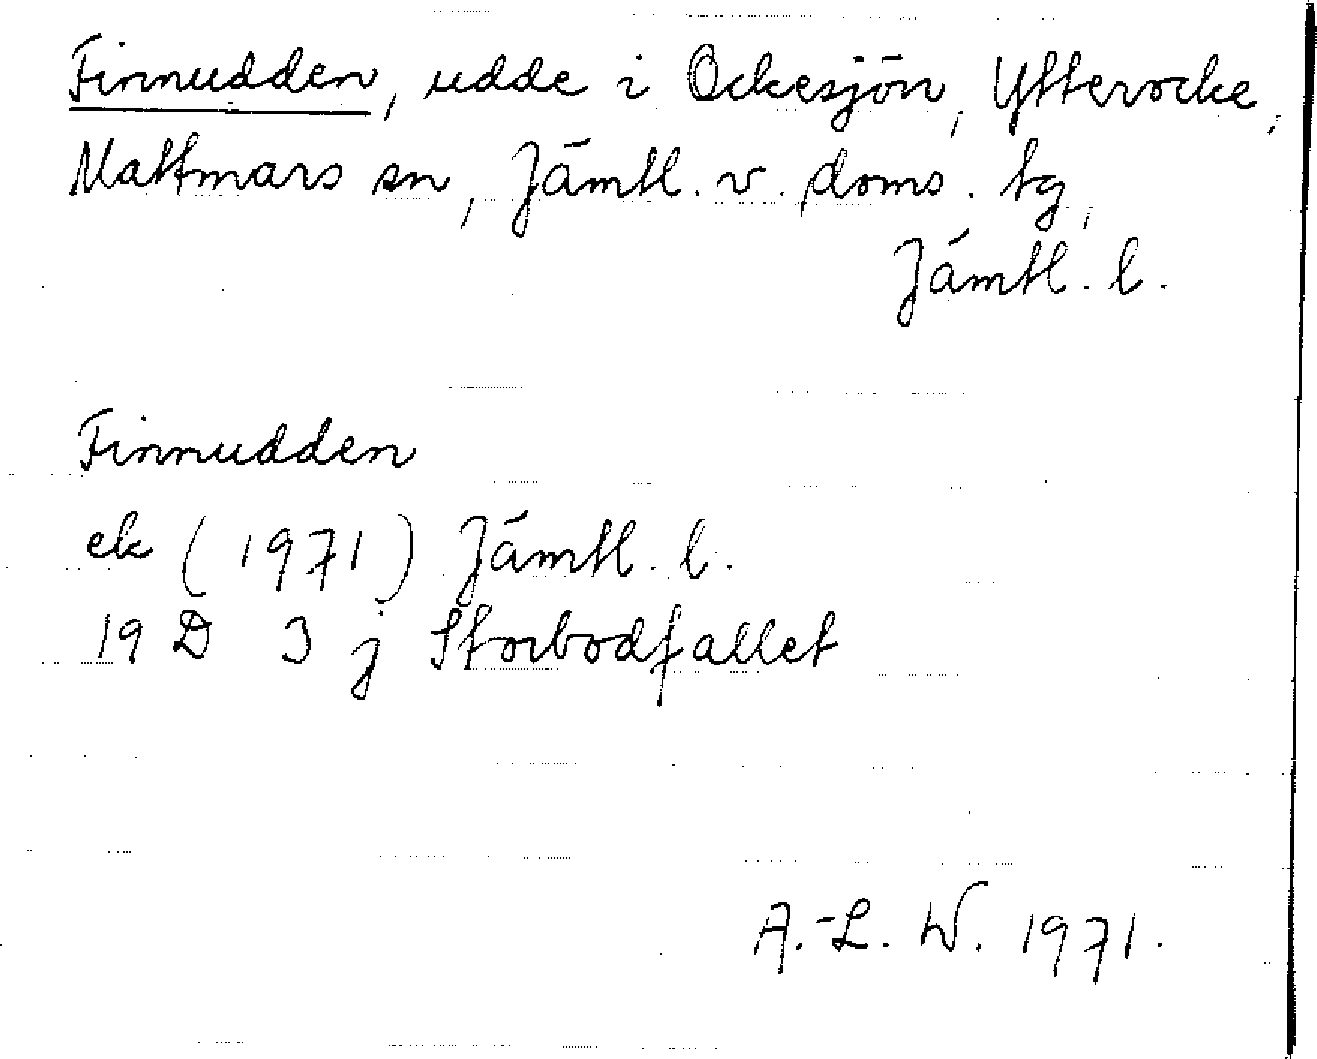 Finnudden, udde i Ockesjön, Ytterocke,
Mattmars sn, Jämtl. v. doms. tg,
Jämtl. l.
Finnudden
ek (1971) Jämtl. l.
19 D 3 j Storbodfallet
A.-L. W. 1971.